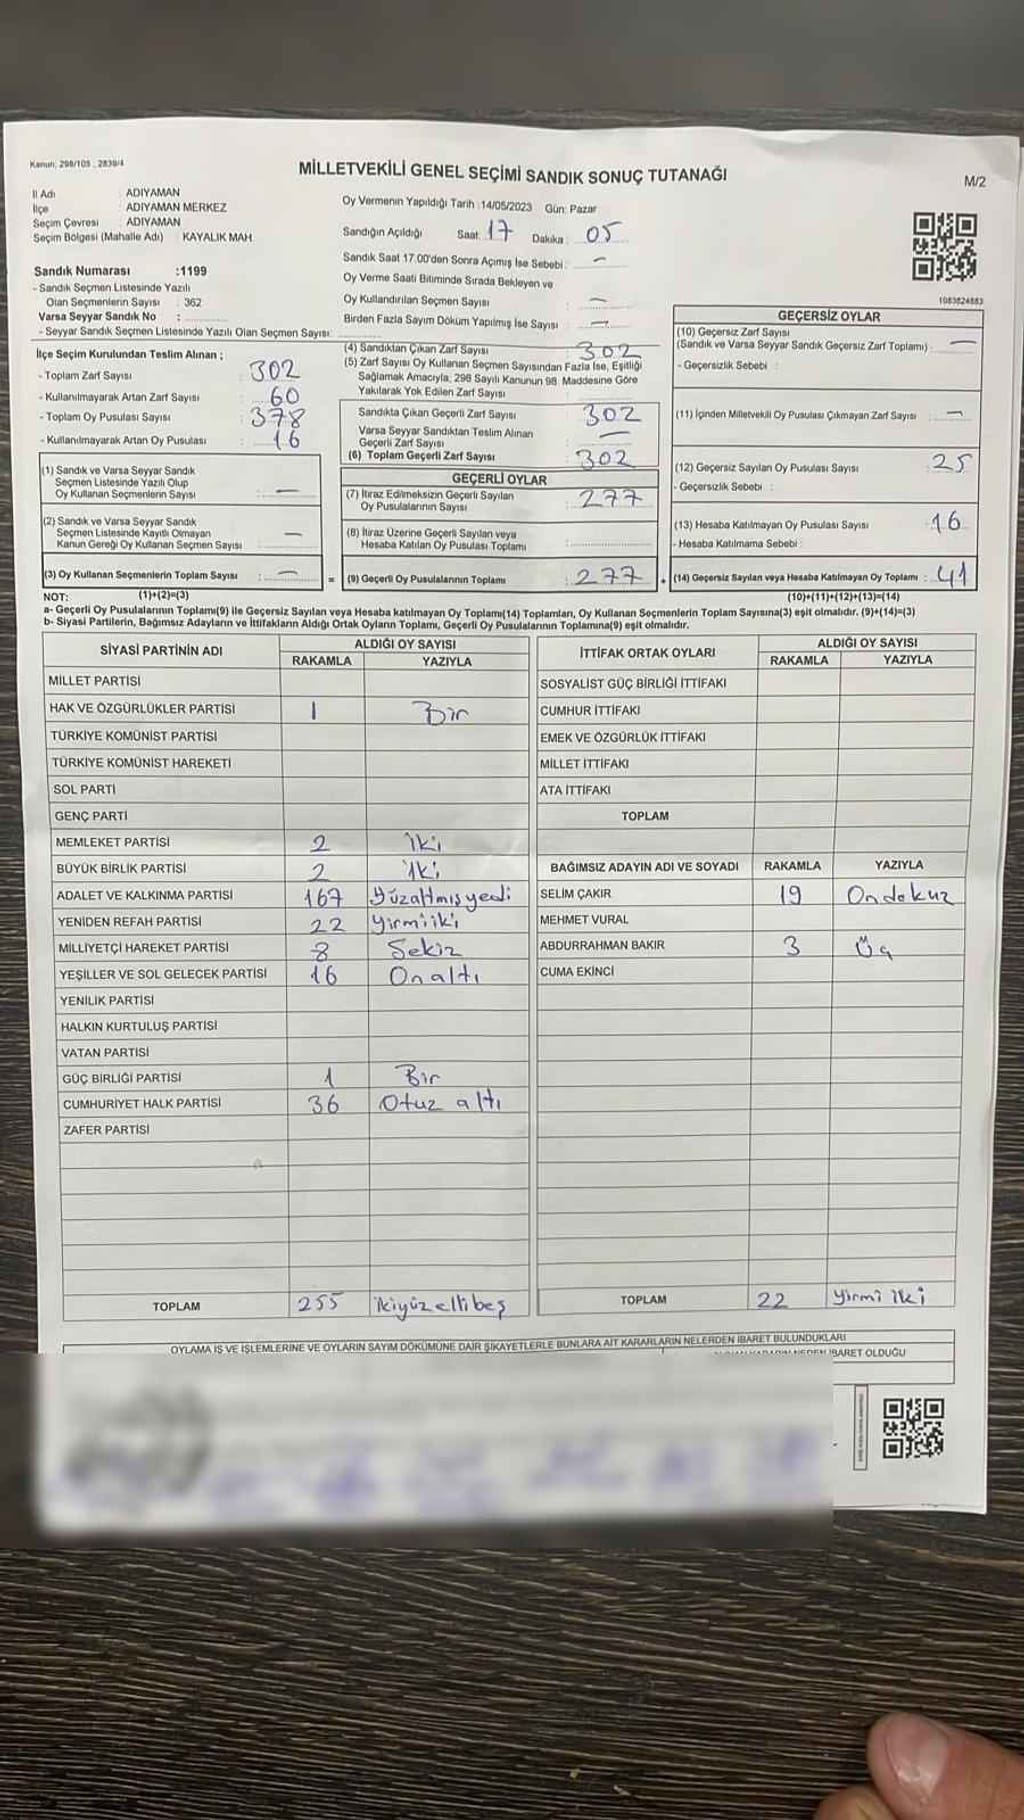 Kanun: 298/105 , 2839/4
MİLLETVEKİLİ GENEL SEÇİMİ SANDIK SONUÇ TUTANAĞI
M/2
İl Adı ADIYAMAN
İlçe ADIYAMAN MERKEZ
Seçim Çevresi : ADIYAMAN
Seçim Bölgesi (Mahalle Adı) KAYALIK MAH.
Sandık Numarası :1199
- Sandık Seçmen Listesinde Yazılı
Olan Seçmenlerin Sayısı : 362
Varsa Seyyar Sandık No :
- Seyyar Sandık Seçmen Listesinde Yazılı Olan Seçmen Sayısı:
İlçe Seçim Kurulundan Teslim Alınan ;
- Toplam Zarf Sayısı 302
- Kullanılmayarak Artan Zarf Sayısı : 60
- Toplam Oy Pusulası Sayısı : 378
- Kullanılmayarak Artan Oy Pusulası : 16
(1) Sandık ve Varsa Seyyar Sandık
Seçmen Listesinde Yazılı Olup
Oy Kullanan Seçmenlerin Sayısı : —
(2) Sandık ve Varsa Seyyar Sandık
Seçmen Listesinde Kayıtlı Olmayan
Kanun Gereği Oy Kullanan Seçmen Sayısı —
(3) Oy Kullanan Seçmenlerin Toplam Sayısı : —
Oy Vermenin Yapıldığı Tarih :14/05/2023 Gün: Pazar
Sandığın Açıldığı Saat: 17 Dakika : 05
Sandık Saat 17.00'den Sonra Açımış İse Sebebi : —
Oy Verme Saati Bitiminde Sırada Bekleyen ve
Oy Kullandırılan Seçmen Sayısı : —
Birden Fazla Sayım Döküm Yapılmış İse Sayısı : —
(4) Sandıktan Çıkan Zarf Sayısı : 302
(5) Zarf Sayısı Oy Kullanan Seçmen Sayısından Fazla İse, Eşitliği
Sağlamak Amacıyla; 298 Sayılı Kanunun 98. Maddesine Göre
Yakılarak Yok Edilen Zarf Sayısı :
Sandıkta Çıkan Geçerli Zarf Sayısı : 302
Varsa Seyyar Sandıktan Teslim Alınan
Geçerli Zarf Sayısı : —
(6) Toplam Geçerli Zarf Sayısı : 302
GEÇERLİ OYLAR
(7) İtiraz Edilmeksizin Geçerli Sayılan
Oy Pusulalarının Sayısı : 277
(8) İtiraz Üzerine Geçerli Sayılan veya
Hesaba Katılan Oy Pusulası Toplamı :
= (9) Geçerli Oy Pusulalarının Toplamı : 277
1083824883
GEÇERSİZ OYLAR
(10) Geçersiz Zarf Sayısı
(Sandık ve Varsa Seyyar Sandık Geçersiz Zarf Toplamı) : —
- Geçersizlik Sebebi :
(11) İçinden Milletvekili Oy Pusulası Çıkmayan Zarf Sayısı : —
(12) Geçersiz Sayılan Oy Pusulası Sayısı : 25
- Geçersizlik Sebebi :
(13) Hesaba Katılmayan Oy Pusulası Sayısı 16
- Hesaba Katılmama Sebebi :
(14) Geçersiz Sayılan veya Hesaba Katılmayan Oy Toplamı : 41
NOT: (1)+(2)=(3) (10)+(11)+(12)+(13)=(14)
a- Geçerli Oy Pusulalarının Toplamı(9) ile Geçersiz Sayılan veya Hesaba katılmayan Oy Toplamı(14) Toplamları, Oy Kullanan Seçmenlerin Toplam Sayısına(3) eşit olmalıdır. (9)+(14)=(3)
b- Siyasi Partilerin, Bağımsız Adayların ve İttifakların Aldığı Ortak Oyların Toplamı, Geçerli Oy Pusulalarının Toplamına(9) eşit olmalıdır.
SİYASİ PARTİNİN ADI ALDIĞI OY SAYISI
RAKAMLA YAZIYLA
MİLLET PARTİSİ
HAK VE ÖZGÜRLÜKLER PARTİSİ 1 Bir
TÜRKİYE KOMÜNİST PARTİSİ
TÜRKİYE KOMÜNİST HAREKETİ
SOL PARTİ
GENÇ PARTİ
MEMLEKET PARTİSİ 2 İki
BÜYÜK BİRLİK PARTİSİ 2 İki
ADALET VE KALKINMA PARTİSİ 167 Yüzaltmışyedi
YENİDEN REFAH PARTİSİ 22 Yirmiiki
MİLLİYETÇİ HAREKET PARTİSİ 8 Sekiz
YEŞİLLER VE SOL GELECEK PARTİSİ 16 Onaltı
YENİLİK PARTİSİ
HALKIN KURTULUŞ PARTİSİ
VATAN PARTİSİ
GÜÇ BİRLİĞİ PARTİSİ 1 Bir
CUMHURİYET HALK PARTİSİ 36 Otuz altı
ZAFER PARTİSİ
TOPLAM 255 ikiyüzellibeş
İTTİFAK ORTAK OYLARI ALDIĞI OY SAYISI
RAKAMLA YAZIYLA
SOSYALİST GÜÇ BİRLİĞİ İTTİFAKI
CUMHUR İTTİFAKI
EMEK VE ÖZGÜRLÜK İTTİFAKI
MİLLET İTTİFAKI
ATA İTTİFAKI
TOPLAM
BAĞIMSIZ ADAYIN ADI VE SOYADI RAKAMLA YAZIYLA
SELİM ÇAKIR 19 Ondokuz
MEHMET VURAL
ABDURRAHMAN BAKIR 3 Üç
CUMA EKİNCİ
TOPLAM 22 Yirmi iki
OYLAMA İŞ VE İŞLEMLERİNE VE OYLARIN SAYIM DÖKÜMÜNE DAİR ŞİKAYETLERLE BUNLARA AİT KARARLARIN NELERDEN İBARET BULUNDUKLARI
İBARET OLDUĞU